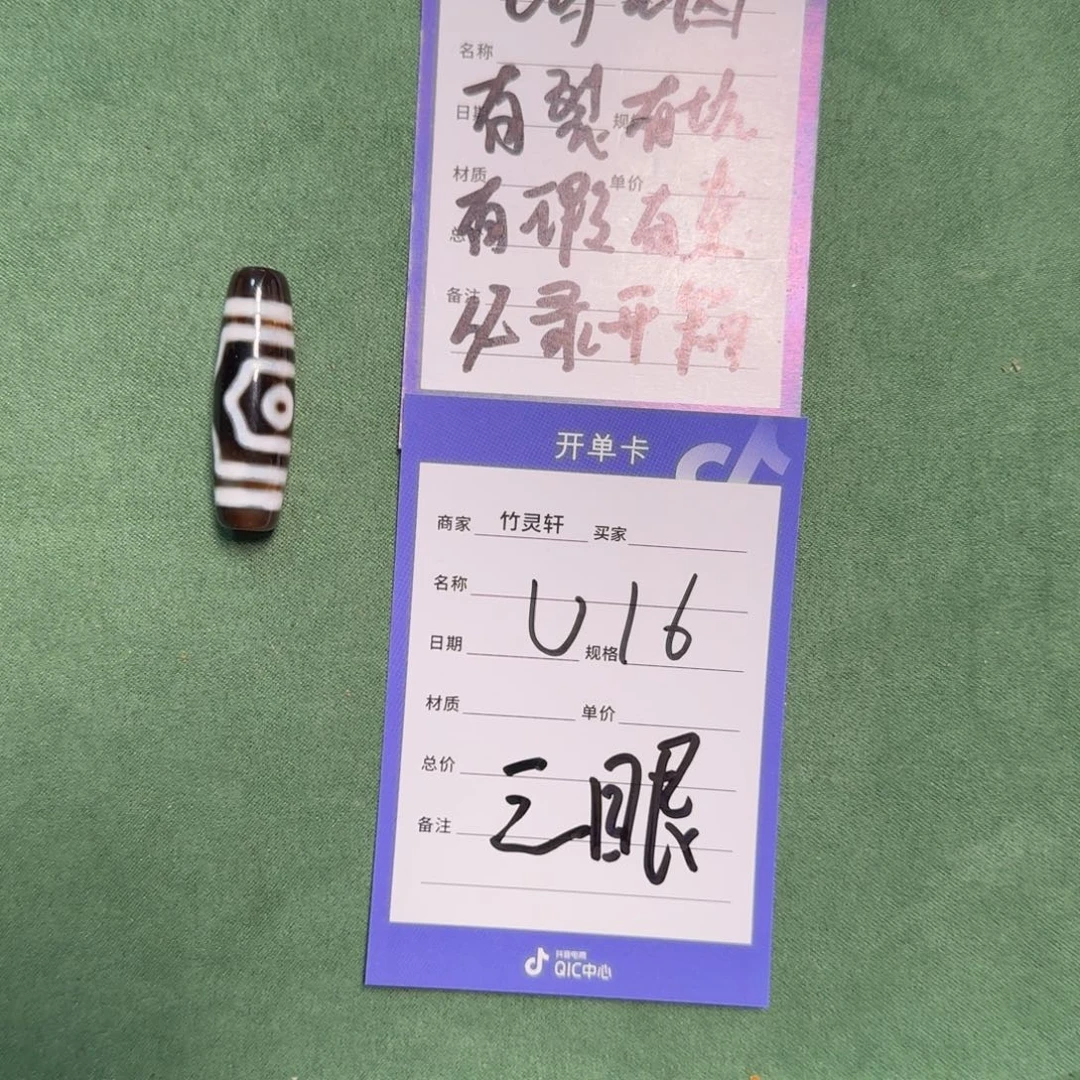 名称
有裂有坑
日期 规格
材质 单价
有瑕有查
备注
必录开箱
开单卡
商家 竹灵轩 买家
名称
U16
日期 规格
材质 单价
总价
三眼
备注
抖音电商
QIC中心